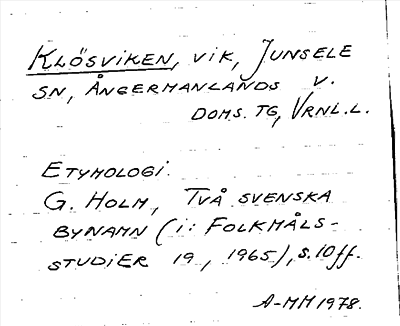 KLÖSVIKEN, VIK, JUNSELE
SN, ÅNGERMANLANDS V.
DOMS. TG, VRNL.L.
ETYMOLOGI.
G. HOLM, TVÅ SVENSKA
BYNAMN (I: FOLKMÅLS-
STUDIER 19, 1965), S. 10 ff.
A-MM 1978.